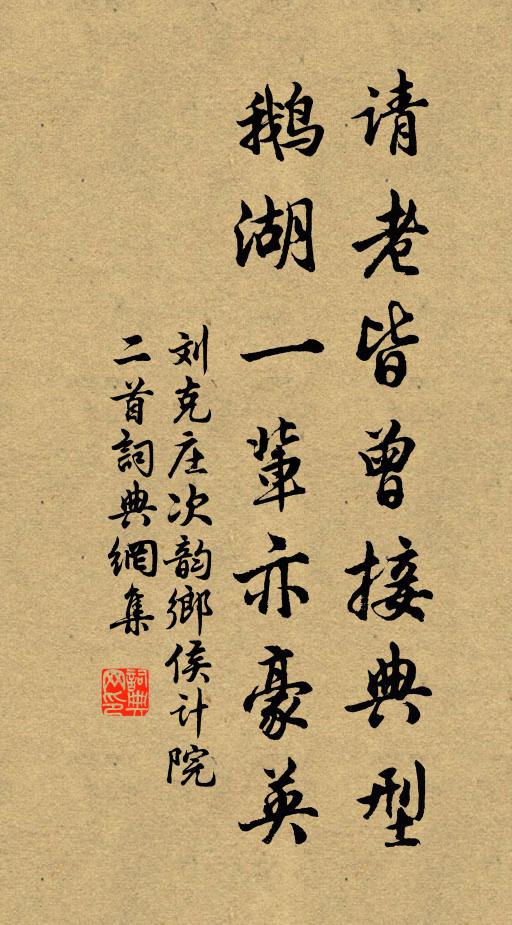 请老皆曾接典型
鹅湖一辈亦豪英
刘克庄次韵鄉侯计院
二首詞典網集
詞典
网印